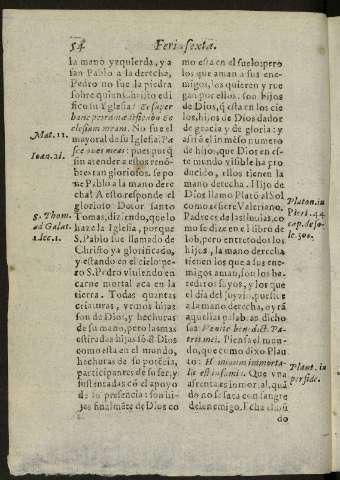 54 Feria sexta.
la mano yzquierda, y a
san Pablo a la derecha,
Pedro no fue la piedra
sobre quien
fico su Yglesia: Et super
hanc petram ædificabo Ec
clesiam meam. No fue el
mayoral de su Iglesia. Pa
sce oues meas: pues porq̃
sin atender a estos renõ
bres tan gloriosos, se po
ne Pablo a la mano dere
cha? A esto responde el
glorioso Dotor santo
Tomas, diziendo, que lo
haze la Iglesia, porque
S. Pablo fue llamado de
Christo ya glorificado,
y estando en el cielo: pe-
ro S. Pedro viuiendo en
carne mortal aca en la
tierra. Todas quantas
criaturas, vemos hijas
son de Dios, y hechuras
de su mano, pero las mas
estiradas hijas só de Dios
como esta en el mundo,
hechuras de su potẽcia,
participantes de su ser, y
sustentadas cõ el apoyo
de su presencia: son hi-
jos finalmẽte de Dios co
Mat. 11.
Ioan. 21.
S. Thom.
ad Galat.
1. lec. 1.
mo esta en el suelo: pero
los que aman a sus ene-
migos, los quieren y rue
gan por ellos: son hijos
de Dios, q̃ esta en los cie
los, hijos de Dios dador
de gracia y de gloria: y
assi es el mismo numero
de hijos, que Dios en es-
te mundo visible ha pro
ducido, ellos tienen la
mano derecha. Hijo de
Dios llamo Platõ al Sol
como refiere Valeriano.
Padre es de las lluuias, co
mo se dize en el libro de
Iob, pero entre todos los
hijos, la mano derecha
tienen los que a sus ene
migos aman, son los he-
rederos suyos, y los que
el dia del juyzio, puestos
a la mano derecha, oyrã
aquellas palabras dicho
sas: Venite benedicti Pa-
tris mei. Piensa el mun-
do, que como dixo Plau
to: Hominum immorta-
lis est infamia. Que vna
afrenta es inmortal, quã
do no se saca con sangre
del enemigo. Echa el mũ
do
Platon. in
Pieri. 44
cap. de so-
le. 300.
Plaut. in
perside.